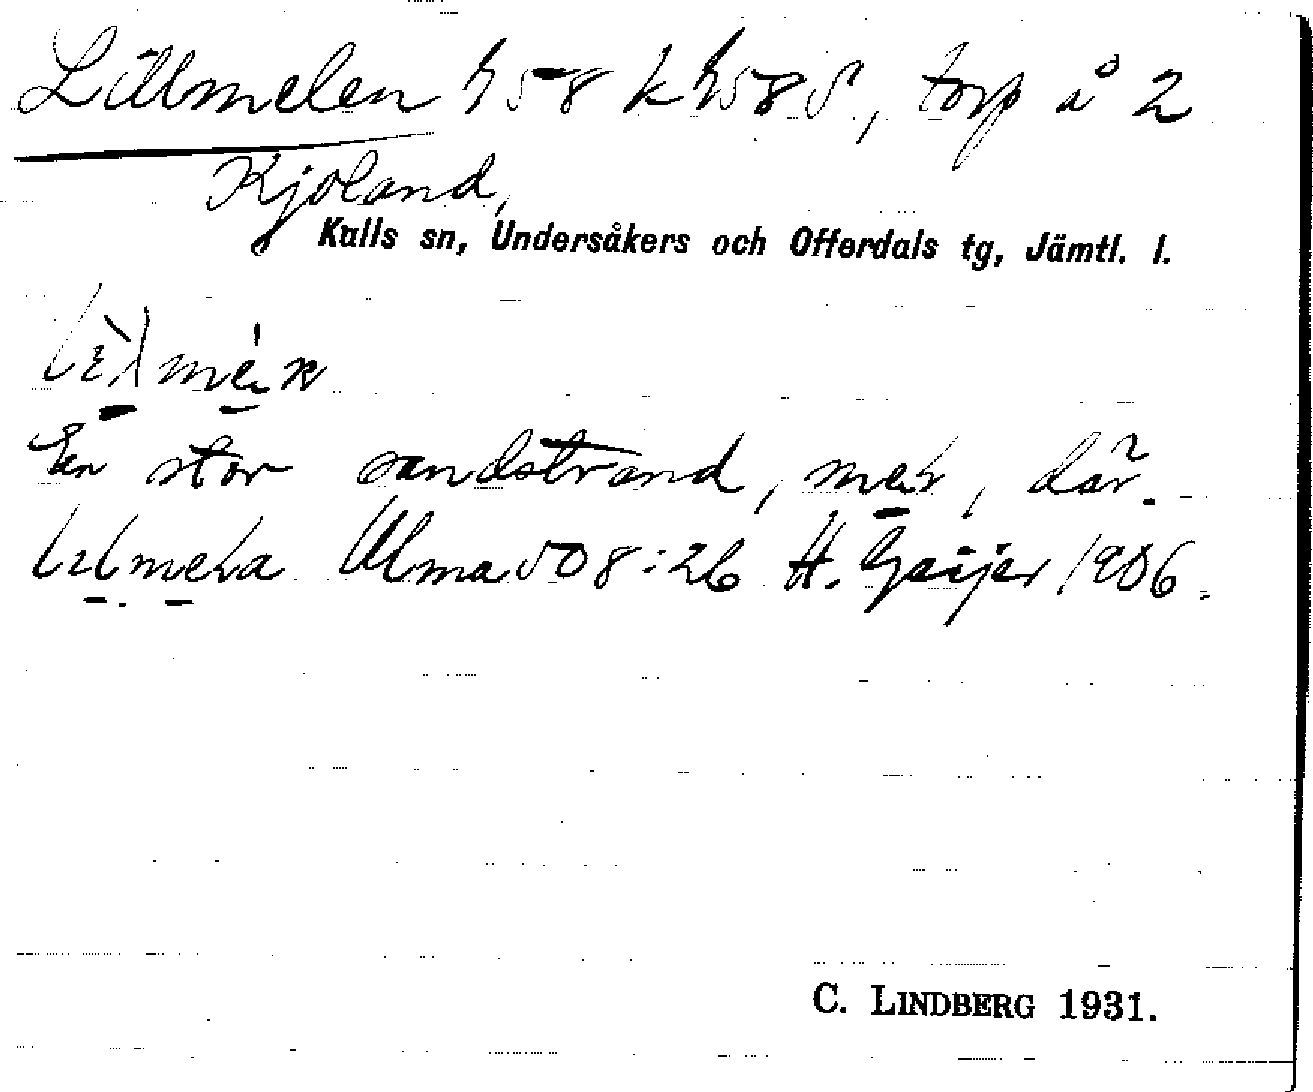 Lillmelen h58 k h58S, torp å 2
Kjoland,
Kalls sn, Undersåkers och Offerdals tg, Jämtl. l.
En stor sandstrand, mel, där.
Ulma 508:26 H. Geijer 1906.
C. LINDBERG 1931.